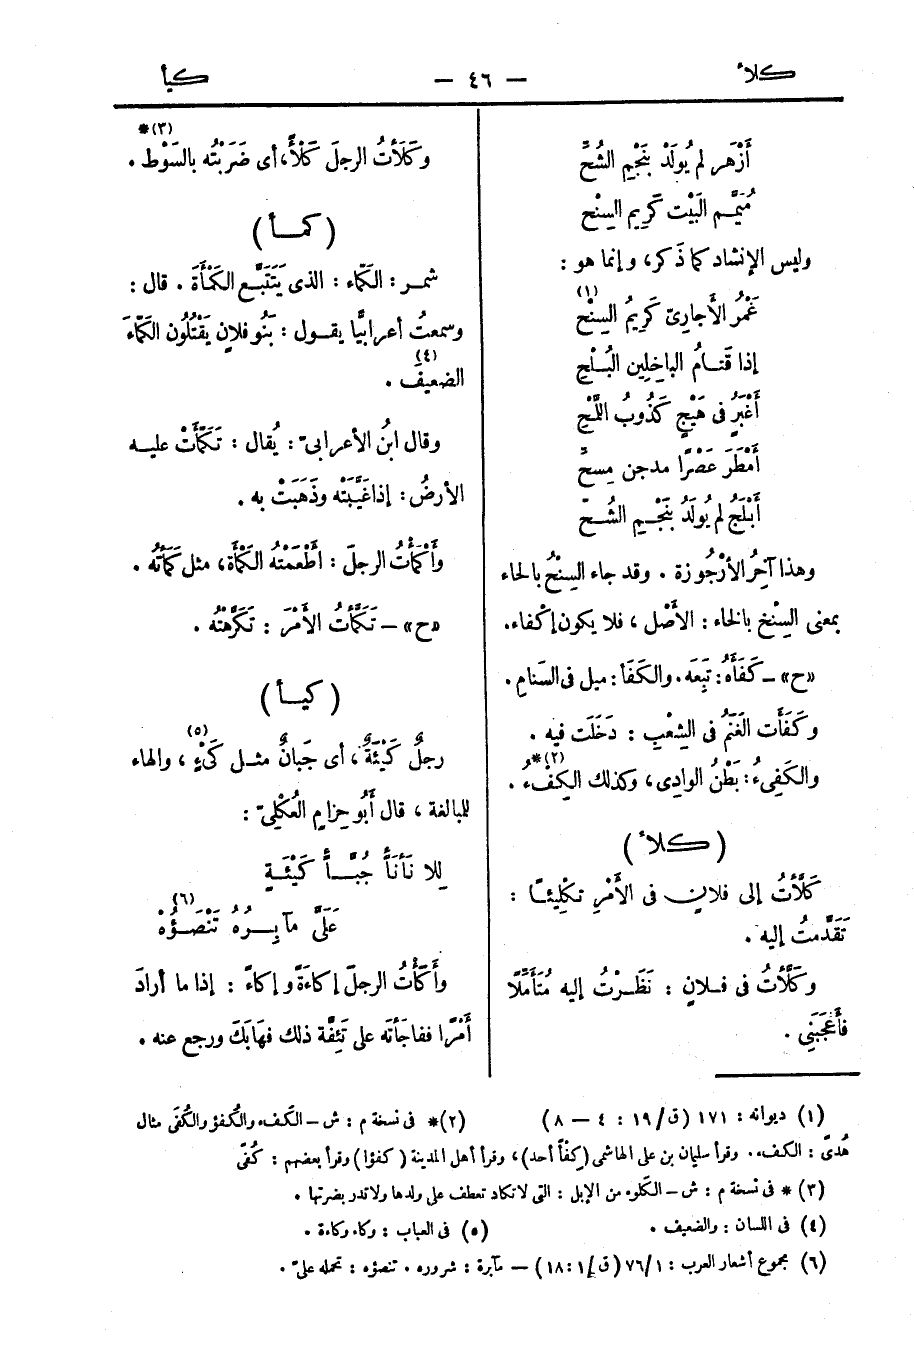 كلأ — ٤٦ — كيأ
أَزْهَر لم يُولَدْ بنَجْمِ الشُحِّ
مُيَمَّم البَيْت كَرِيم السِنْح
وليس الإنشاد كما ذَكر، وإنما هو :
غَمْرُ الأَجارِىّ كَرِيمُ السِنْحِ (١)
إذا قَتامُ الباخِلِين البُلْحِ
أَغْبَرُ فى هَيْجٍ كَذُوبُ اللَّمْحِ
أَمْطَرَ عَصْرًا مدجن مِسحِّ
أَبْلَجُ لم يُولَدُ بنَجْمِ الشُحِّ
وهذا آخِرُ الأُرْجُوزة . وقد جاء السِنْحُ بالحاء
بمعنى السِنْخ بالخاء : الأَصْل ، فلا يكون إكْفاء.
«ح» – كَفَأَهُ: تَبِعَه. والكَفَأ: ميل فى السَنامِ.
وكَفَأَت الغَنَمُ فى الشِعْبِ : دَخَلَت فيه .
والكَفِىءُ: بَطْنُ الوادِى، وكذلك الكِفْءُ . (٢)*
( كلأ )
كَلَّأْتُ إلى فلانٍ فى الأَمْرِ تكْلِيئًا :
تَقَدَّمتُ إليه .
وكَلَّأْتُ فى فلان : نَظَرْتُ إليه مُتَأَمِّلًا
فأَعْجَبَنِى .
وكَلَأْتُ الرجلَ كَلْأً، أى ضَرَبْتُه بالسَوْط . (٣)*
( كمأ )
شمر : الكَمّاء : الذى يَتَتَبَّع الكَمْأَةَ . قال :
وسمعتُ أعرابيًّا يقول : بَنُو فلانٍ يَقْتُلُون الكَمّاءَ
الضعيفَ . (٤)
وقال ابنُ الأعرابىّ : يُقال : تَكَمَّأَتْ عليه
الأرضُ : إذا غَيَّبَتْه وذَهَبَتْ به .
وأَكْمَأْتُ الرجلَ : أَطْعَمْتُه الكَمْأَة، مثل كَمَأْتُه .
«ح» – تَكَمَّأْتُ الأَمْرَ : تَكَرَّهْتُه .
( كيأ )
رجلٌ كَيْئَةٌ، أى جَبانٌ مثل كَىْءٍ (٥)، والهاء
للمبالغة ، قال أَبُو حِزامٍ العُكْلِىّ :
لِلا نَأْنَأً جُبَّأً كَيْئَةٍ
عَلَىَّ مآبِرُه تَنْصَؤُهْ (٦)
وأَكَأْتُ الرجلَ إكاءَةً وإكاءً : إذا ما أرادَ
أَمْرًا ففاجَأتَه على تَئِفَّة ذلك فهابَكَ ورجع عنه .
(١) ديوانه : ١٧١ (ق/١٩ : ٤ – ٨) (٢)* فى نسخة م : ش – الكَفء والكُفؤ والكُفَى مثال
هُدًى : الكفء. وقرأ سليمان بن على الهاشمى (كِفْأً أحد)، وقرأ أهل المدينة (كفؤا) وقرأ بعضهم : كُفًى
(٣) * فى نسخة م : ش – الكلوء من الإبل : التى لا تكاد تعطف على ولدها ولا تدر بضرتها .
(٤) فى اللسان : والضعيف . (٥) فى العباب : وكاء وكاءة .
(٦) مجموع أشعار العرب : ٧٦/١ (ق/١ : ١٨) – مآبرة : شروره . تنصؤه : تحمله علىّ .